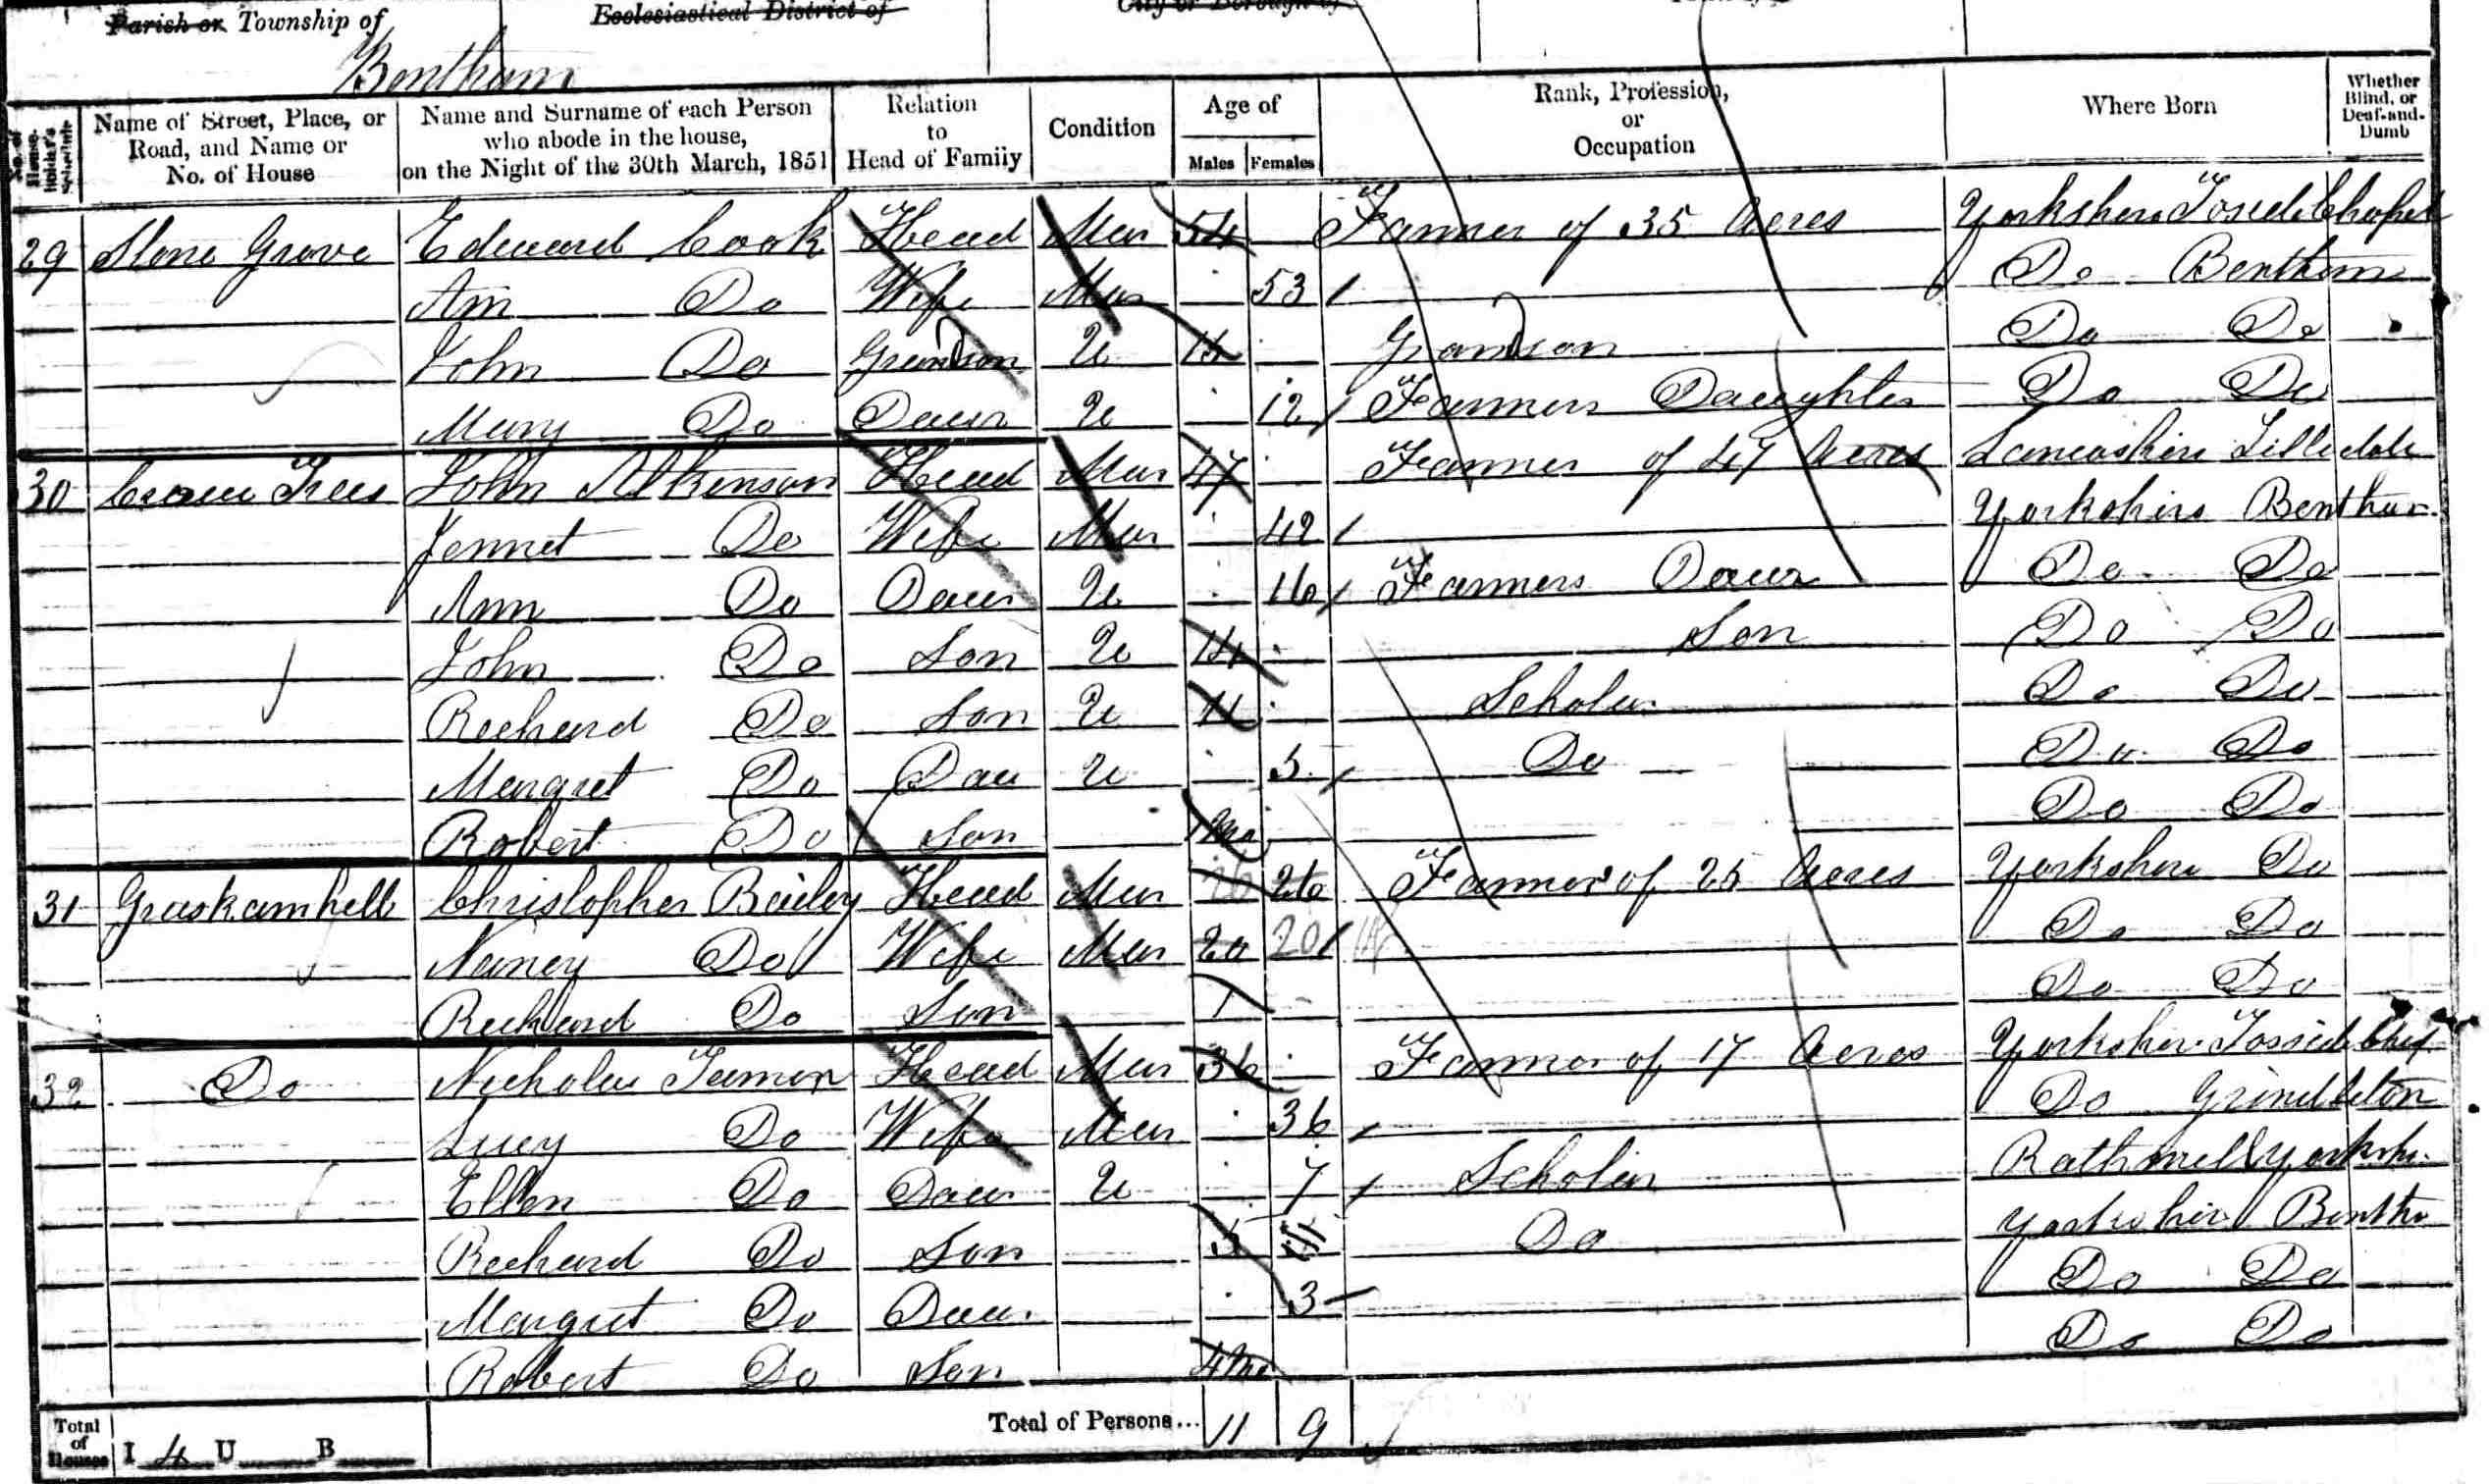 Parish or Township of
Ecclesiastical District of
City or Borough of
Bentham
No. of House-holder's Schedule
Name of Street, Place, or Road, and Name or No. of House
Name and Surname of each Person who abode in the house, on the Night of the 30th March, 1851
Relation to Head of Family
Condition
Age of
Males Females
Rank, Profession, or Occupation
Where Born
Whether Blind, or Deaf-and-Dumb
29 Stone Grove Edward Cook Head Mar 54 Farmer of 35 Acres Yorkshire Tosside Chapel
Ann Do Wife Mar 53 Do Bentham
John Do Grandson U Grandson Do Do
Mary Do Daur U 12 Farmers Daughter Do Do
30 Trees John Atkinson Head Mar 47 Farmer of 47 Acres Lancashire
Jennet Do Wife Mar 42 Yorkshire Bentham
Ann Do Daur U 16 Farmers Daur Do Do
John Do Son U 14 Son Do Do
Richard Do Son U 11 Scholar Do Do
Margret Do Dau U 5 Do Do Do
Robert Do Son Do Do
31 Christopher Bailey Head Mar 26 26 Farmer of 25 Acres Yorkshire Do
Nancy Do Wife Mar 20 20 Do Do
Richard Do Son 1 Do Do
32 Do Nicholas Head Mar 36 Farmer of 17 Acres Yorkshire Tosside Chap
Lucy Do Wife Mar 36 Do Grindleton
Ellen Do Daur U 7 Scholar Rathmell Yorkshr
Richard Do Son 5 Do Yorkshire Bentha
Margret Do Dau 3 Do Do
Robert Do Son 4 Mo Do Do
Total of Houses I 4 U B
Total of Persons... 11 9